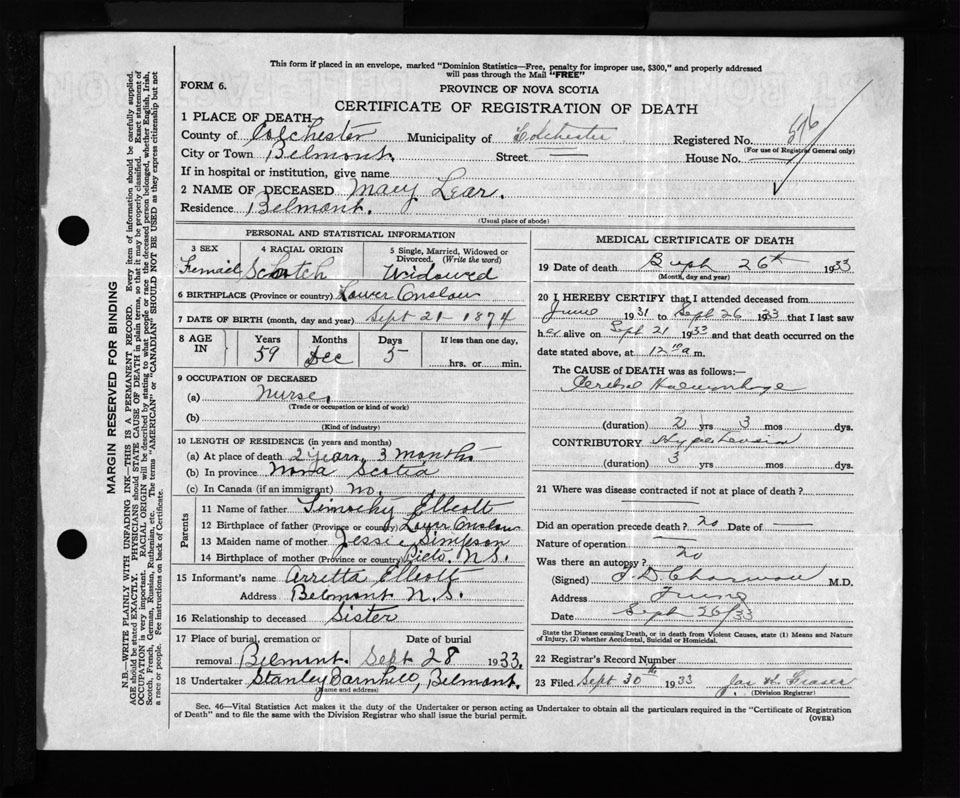 This form if placed in an envelope, marked "Dominion Statistics—Free, penalty for improper use, $300," and properly addressed
will pass through the Mail "FREE"
FORM 6.
PROVINCE OF NOVA SCOTIA
CERTIFICATE OF REGISTRATION OF DEATH
1 PLACE OF DEATH
County of Colchester Municipality of Colchester Registered No. 576
(For use of Registrar General only)
City or Town Belmont. Street — House No. —
If in hospital or institution, give name
2 NAME OF DECEASED Mary Lear.
Residence Belmont.
(Usual place of abode)
PERSONAL AND STATISTICAL INFORMATION
3 SEX 4 RACIAL ORIGIN 5 Single, Married, Widowed or
Divorced. (Write the word)
Femail Schotch Widowed
6 BIRTHPLACE (Province or country) Lower Onslow
7 DATE OF BIRTH (month, day and year) Sept 21 - 1874
8 AGE IN Years Months Days If less than one day,
59 Dec 5 hrs. or min.
9 OCCUPATION OF DECEASED
(a) Nurse.
(Trade or occupation or kind of work)
(b)
(Kind of industry)
10 LENGTH OF RESIDENCE (in years and months)
(a) At place of death 2 years 3 months
(b) In province Nova Scotia
(c) In Canada (if an immigrant) no.
Parents
11 Name of father Timothy Elliott
12 Birthplace of father (Province or country) Lower Onslow
13 Maiden name of mother Jessie Simpson
14 Birthplace of mother (Province or country) Picto. N.S.
15 Informant's name Arretta Elliott
Address Belmont N.S.
16 Relationship to deceased Sister
17 Place of burial, cremation or Date of burial
removal Belmont. Sept 28 1933.
18 Undertaker Stanley Barnhill, Belmont.
(name and address)
MEDICAL CERTIFICATE OF DEATH
19 Date of death Sept 26th 1933
(Month, day and year)
20 I HEREBY CERTIFY that I attended deceased from
June 1931 to Sept 26 1933 that I last saw
her alive on Sept 21 1933 and that death occurred on the
date stated above, at 12 a m.
The CAUSE of DEATH was as follows:—
Cerebral Haemorrhage
(duration) 2 yrs 3 mos dys.
CONTRIBUTORY Hypertension
(duration) 3 yrs mos dys.
21 Where was disease contracted if not at place of death?
—
Did an operation precede death? no Date of —
Nature of operation —
Was there an autopsy? no
(Signed) M.D.
Address Truro
Date Sept 26/33
State the Disease causing Death, or in death from Violent Causes, state (1) Means and Nature
of Injury, (2) whether Accidental, Suicidal or Homicidal.
22 Registrar's Record Number
23 Filed Sept 30th 1933 Jas H. Fraser
(Division Registrar)
Sec. 46—Vital Statistics Act makes it the duty of the Undertaker or person acting as Undertaker to obtain all the particulars required in the "Certificate of Registration
of Death" and to file the same with the Division Registrar who shall issue the burial permit. (OVER)
MARGIN RESERVED FOR BINDING
N.B.—WRITE PLAINLY WITH UNFADING INK—THIS IS A PERMANENT RECORD. Every item of information should be carefully supplied.
AGE should be stated EXACTLY. PHYSICIANS should STATE CAUSE OF DEATH in plain terms, so that it may be properly classified. Exact statement of
OCCUPATION is very important. RACIAL ORIGIN will be described by stating to what people or race the deceased person belonged, whether English, Irish,
Scotch, French, German, Russian, Ruthenian, etc. The terms "AMERICAN" or "CANADIAN" SHOULD NOT BE USED as they express citizenship but not
a race or people. See instructions on back of Certificate.